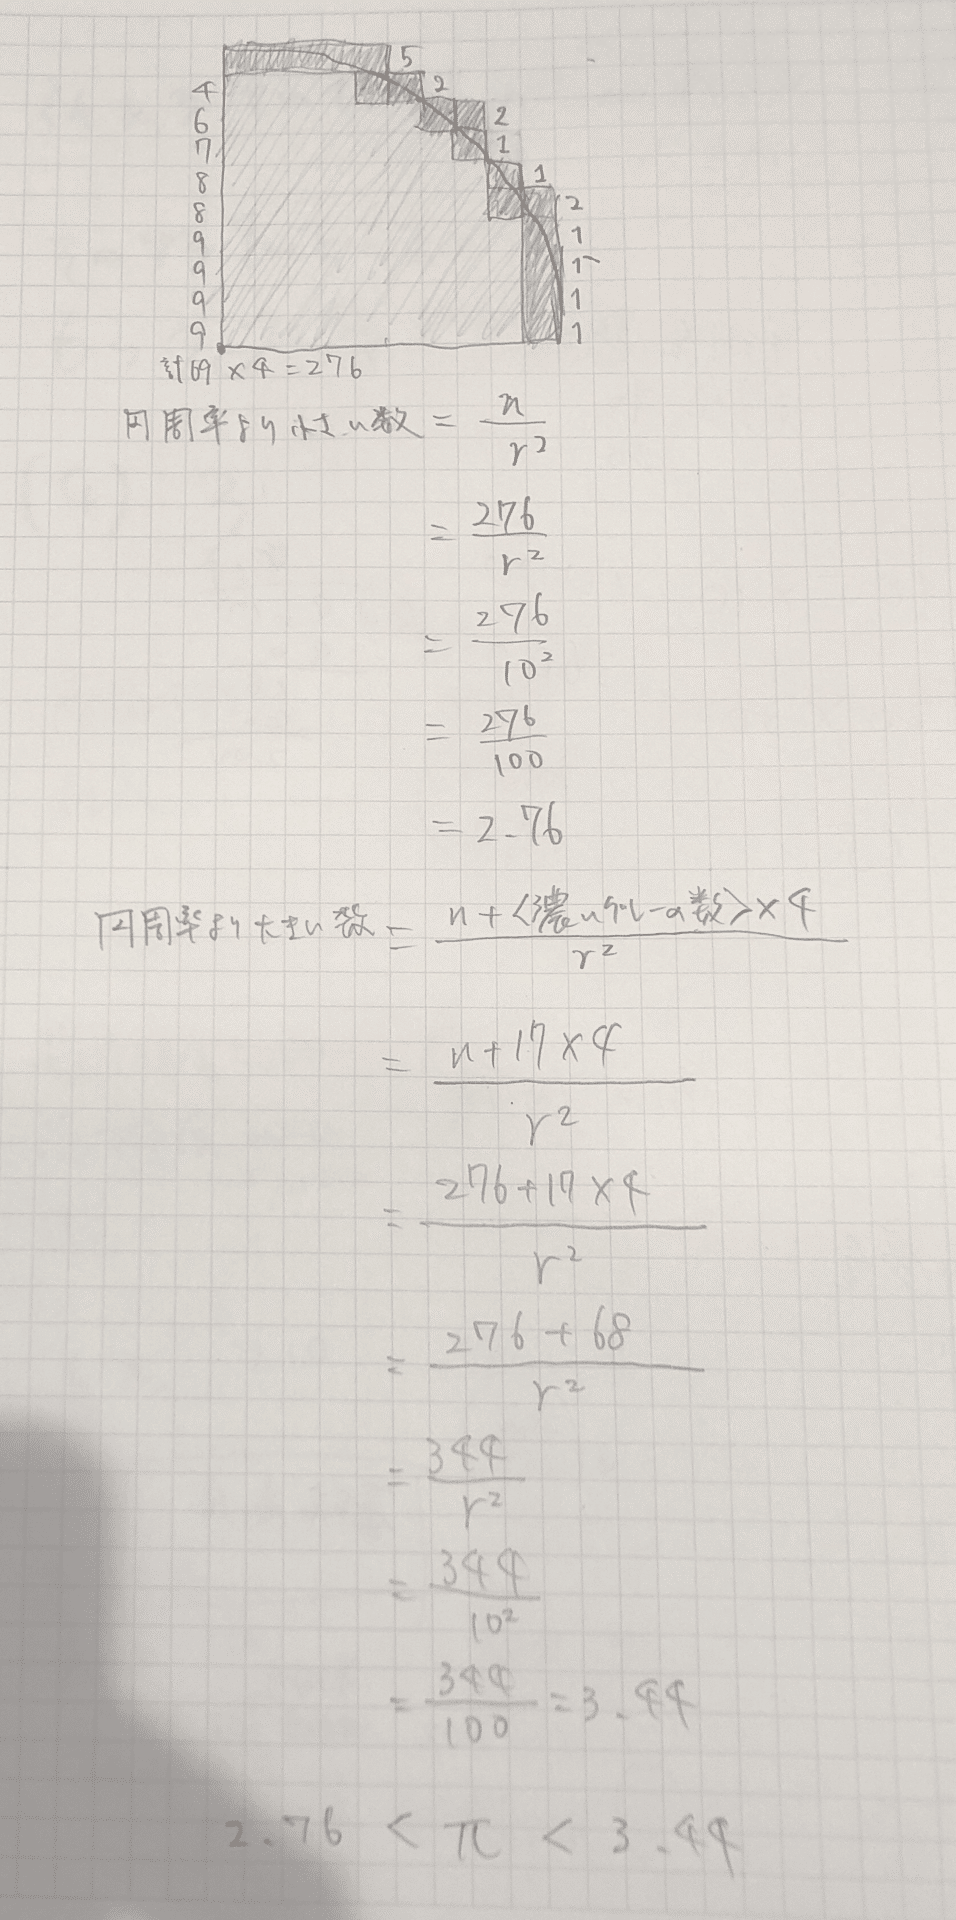 5
4 2
6 2
7 1
8 1
8 2
9 1
9 1
9 1
9 1
計69×4=276
円周率より小さい数 = n/r²
= 276/r²
= 276/10²
= 276/100
= 2.76
円周率より大きい数 = n+<濃いグレーの数>×4/r²
= n+17×4/r²
= 276+17×4/r²
= 276+68/r²
= 344/r²
= 344/10²
= 344/100 = 3.44
2.76 < π < 3.44